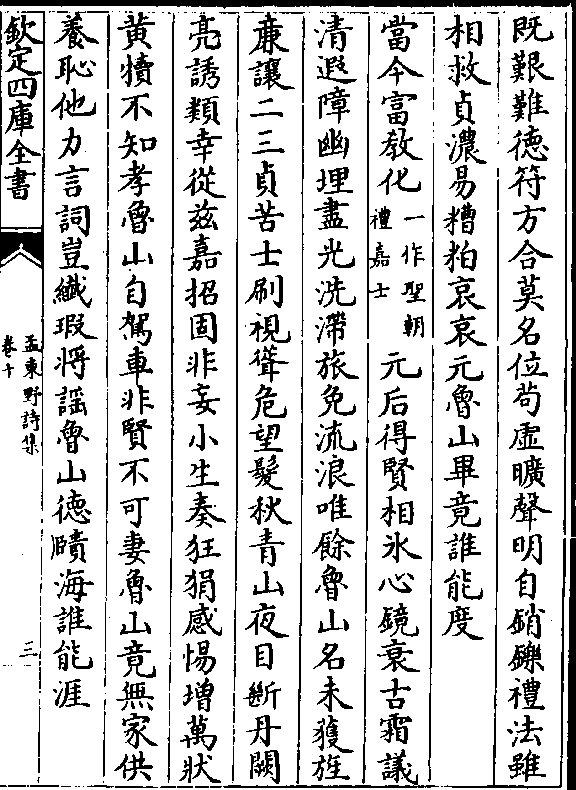 既艱難德符方合莫名位苟虛曠聲明自銷鑠禮法雖
相救貞濃易糟粕哀哀元魯山畢竟誰能度
當今富教化一作聖朝禮嘉士元后得賢相氷心鏡衰古霜議
清遐障幽埋盡光洗滯旅免流浪唯餘魯山名未獲旌
亷讓二三貞苦士刷視聳危望髮秋青山夜目斷丹闕
亮誘類幸從兹嘉招固非妄小生奏狂狷感惕增萬狀
黄犢不知孝魯山自駕車非賢不可妻魯山竟無家供
養恥他力言詞豈纎瑕將謡魯山德賾海誰能涯
欽定四庫全書
孟東野詩集
卷十
三